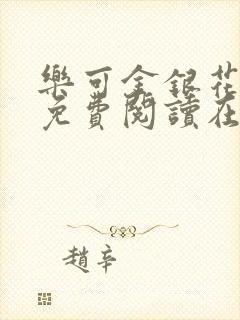 樂可金銀花
免費閱讀在
趙辛